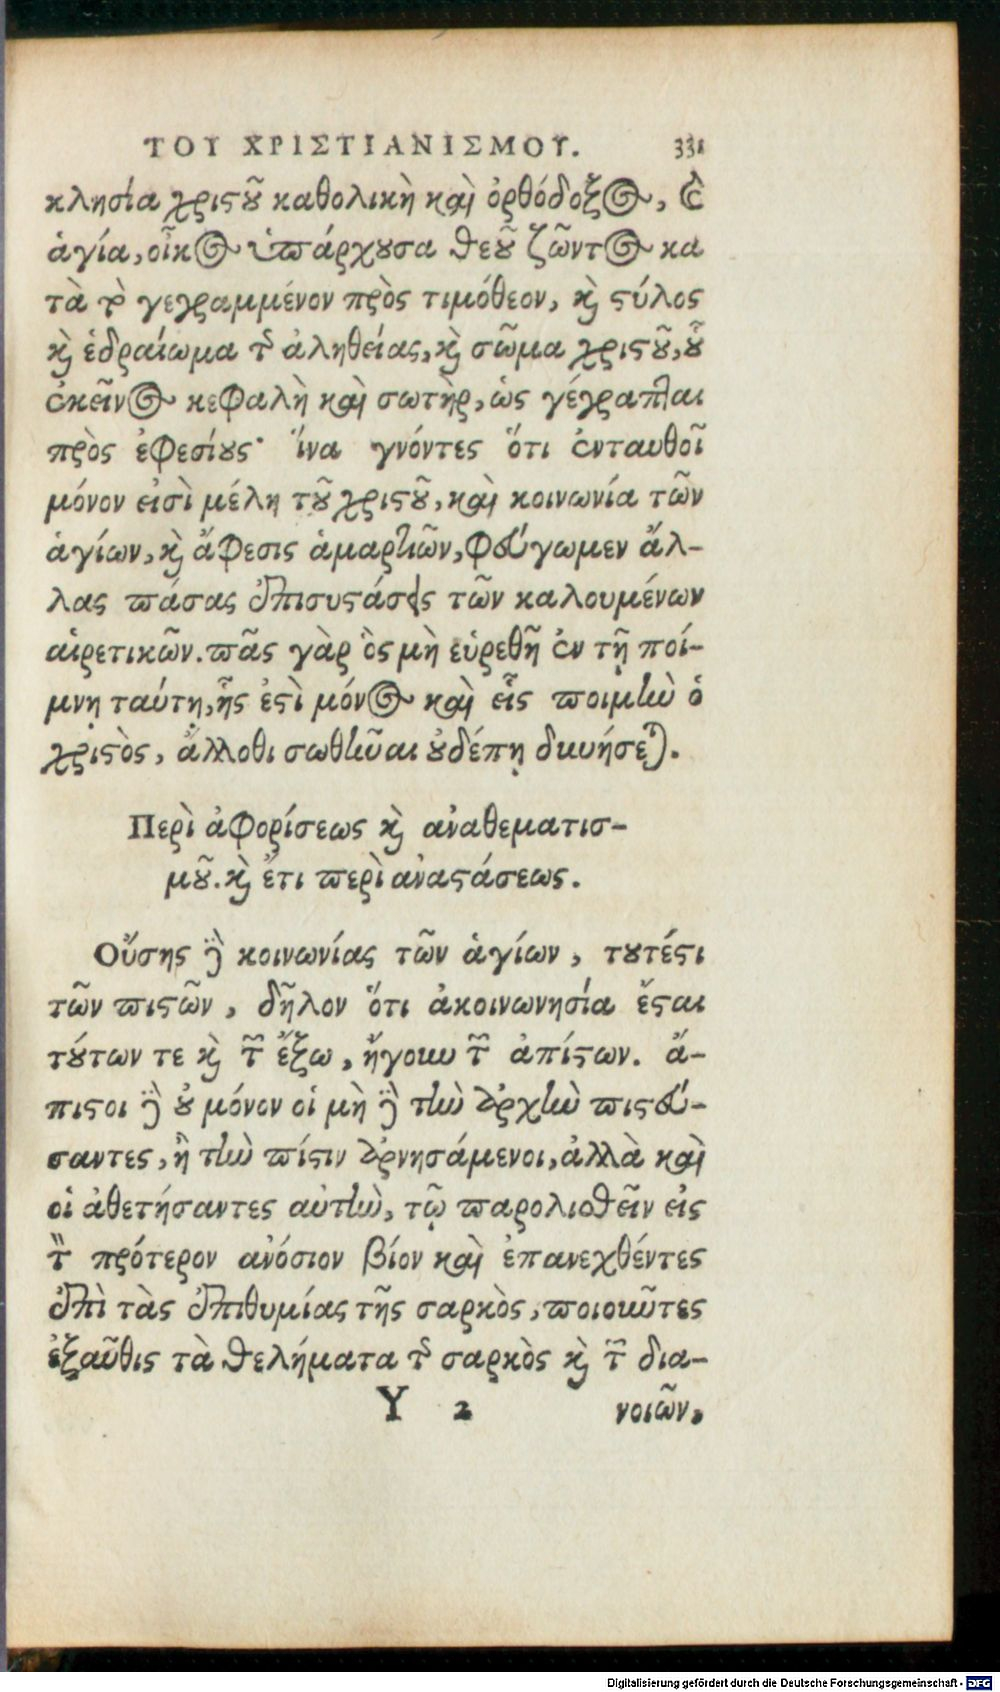 ΤΟΥ ΧΡΙΣΤΙΑΝΙΣΜΟΥ. 331
κλησία χριϛȣ͂ καθολικὴ καὶ ὀρθόδοξος, ἐ
ἁγία, οἶκος ὑπάρχȣσα θεȣ͂ ζῶντος κα
τὰ τὸ γεγραμμένον πρὸς τιμόθεον, ϗ̀ ϛύλος
ϗ̀ ἑδραίωμα τῆς ἀληθείας, ϗ̀ σῶμα χριϛȣ͂, ȣ̔͂
ἐκεῖνος κεφαλὴ καὶ σωτὴρ, ὡς γέγραπται
πρὸς ἐφεσίȣς· ἵνα γνόντες ὅτι ἐνταυθοῖ
μόνον εἰσὶ μέλη τȣ͂ χριϛȣ͂, καὶ κοινωνία τῶν
ἁγίων, ϗ̀ ἄφεσις ἁμαρτιῶν, φεύγωμεν ἄλ-
λας πάσας ἐπισυϛάσεις τῶν καλουμένων
αἱρετικῶν. πᾶς γὰρ ὃς μὴ εὑρεθῇ ἐν τῇ ποί-
μνῃ ταύτῃ, ἧς ἐϛὶ μόνος καὶ εἷς ποιμὴν ὁ
χριϛὸς, ἄλλοθι σωθῆναι ȣ̓δέπῃ δυνήσεται.
Περὶ ἀφορίσεως ϗ̀ ἀναθεματισ-
μȣ͂. ϗ̀ ἔτι περὶ ἀναϛάσεως.
Οὔσης δὲ κοινωνίας τῶν ἁγίων, τȣτέϛι
τῶν πιϛῶν, δῆλον ὅτι ἀκοινωνησία ἔϛαι
τȣ́των τε ϗ̀ τῶν ἔξω, ἤγουν τῶν ἀπίϛων. ἄ-
πιϛοι δὲ ȣ̓ μόνον οἱ μὴ δὲ τὴν ἀρχὴν πιϛεύ-
σαντες, ἢ τὴν πίϛιν ἀρνησάμενοι, ἀλλὰ καὶ
οἱ ἀθετήσαντες αὐτὴν, τῷ παρολισθεῖν εἰς
τὸν πρότερον ἀνόσιον βίον καὶ ἐπανεχθέντες
ἐπὶ τὰς ἐπιθυμίας τῆς σαρκὸς, ποιοῦντες
ἐξαῦθις τὰ θελήματα τῆς σαρκὸς ϗ̀ τῶν δια-
Υ 2 νοιῶν,
Digitalisierung gefördert durch die Deutsche Forschungsgemeinschaft - DFG